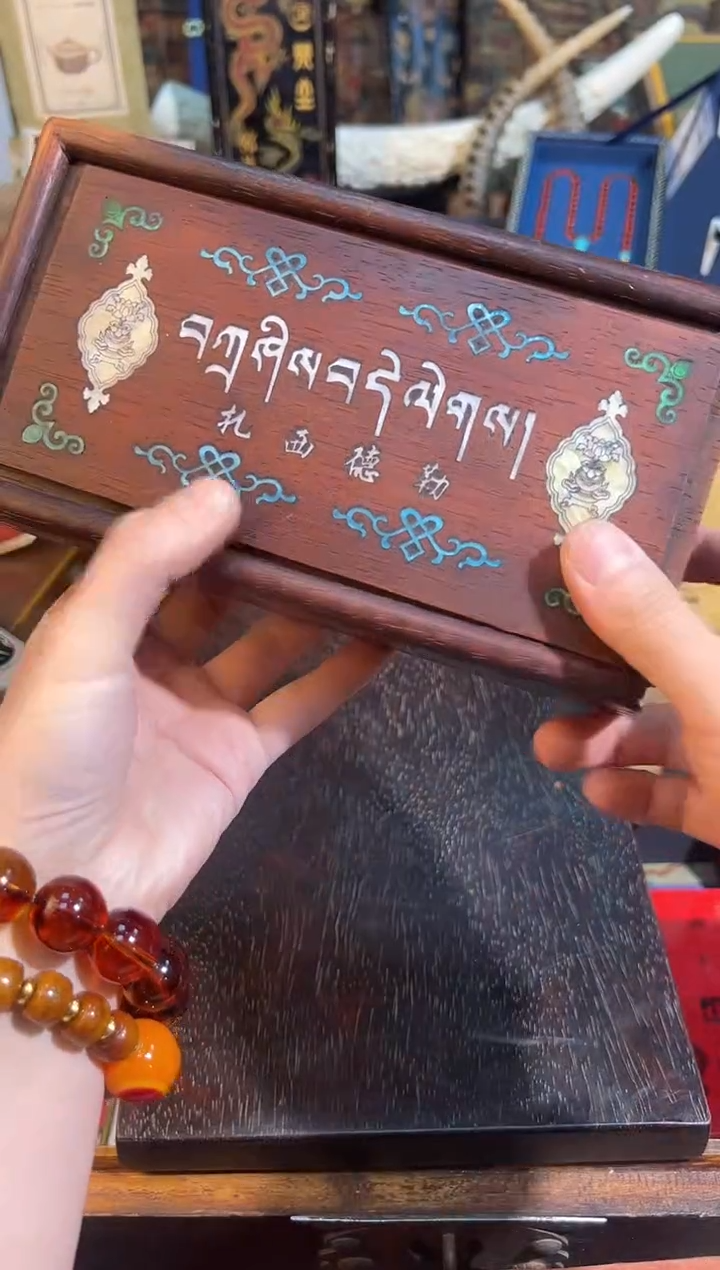 བཀྲཤིསབདེལེགས།
扎西德勒